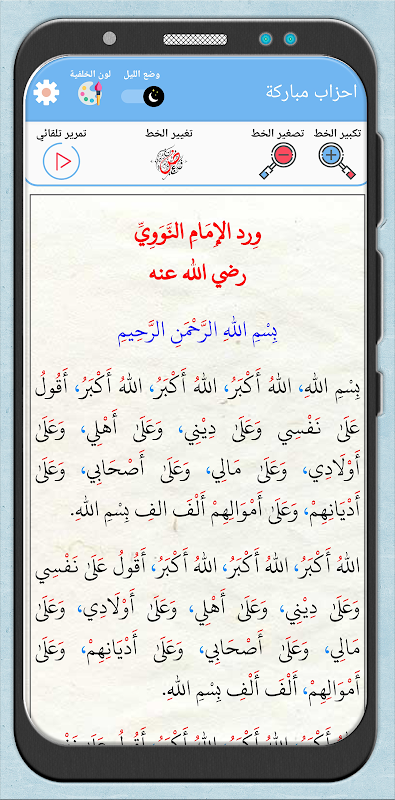 وضع الليل
لون الخلفية
احزاب مباركة
تكبير الخط
تصغير الخط
تغيير الخط
تمرير تلقائي
وِرد الإِمَامِ النَّوَوِيِّ
رضي الله عنه
بِسْمِ اللهِ الرَّحْمَنِ الرَّحِيمِ
بِسْمِ اللهِ، اللهُ أَكْبَرُ، اللهُ أَكْبَرُ، اللهُ أَكْبَرُ، أَقُولُ
عَلَىٰ نَفْسِي وَعَلَىٰ دِيْنِي، وَعَلَىٰ أَهْلِي، وَعَلَىٰ
أَوْلَادِي، وَعَلَىٰ مَالِي، وَعَلَىٰ أَصْحَابِي، وَعَلَىٰ
أَدْيَانِهِمْ، وَعَلَىٰ أَمْوَالِهِمْ أَلْفَ الفِ بِسْمِ اللهِ.
اللهُ أَكْبَرُ، اللهُ أَكْبَرُ، اللهُ أَكْبَرُ، أَقُولُ عَلَىٰ نَفْسِي
وَعَلَىٰ دِيْنِي، وَعَلَىٰ أَهْلِي، وَعَلَىٰ أَوْلَادِي، وَعَلَىٰ
مَالِي، وَعَلَىٰ أَصْحَابِي، وَعَلَىٰ أَدْيَانِهِمْ، وَعَلَىٰ
أَمْوَالِهِمْ، أَلْفَ أَلْفِ بِسْمِ اللهِ.